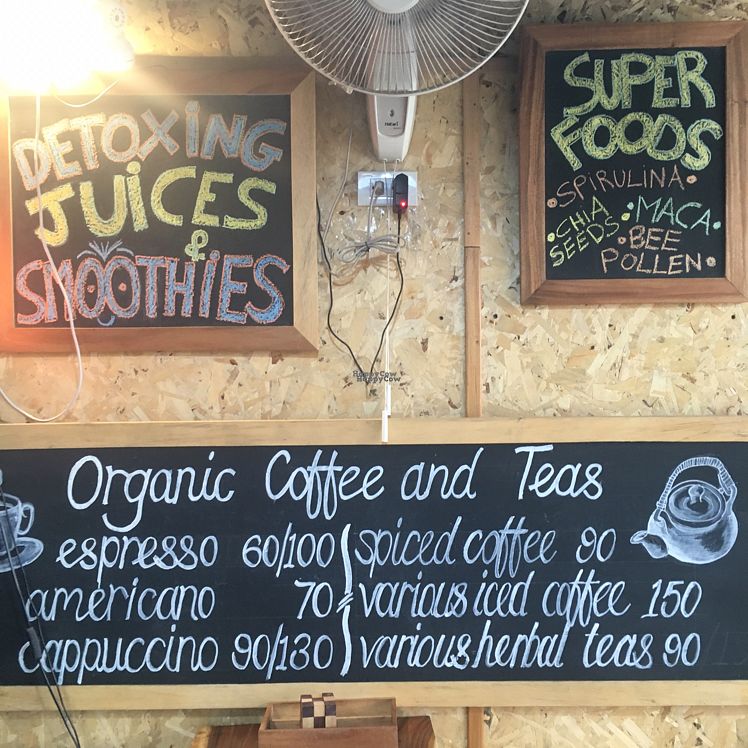 DETOXING
JUICES
&
SMOOTHIES
SUPER
FOODS
SPIRULINA
CHIA
SEEDS
MACA
BEE
POLLEN
HappyCow
HappyCow
Organic Coffee and Teas
espresso 60/100
americano 70
cappuccino 90/130
spiced coffee 90
various iced coffee 150
various herbal teas 90